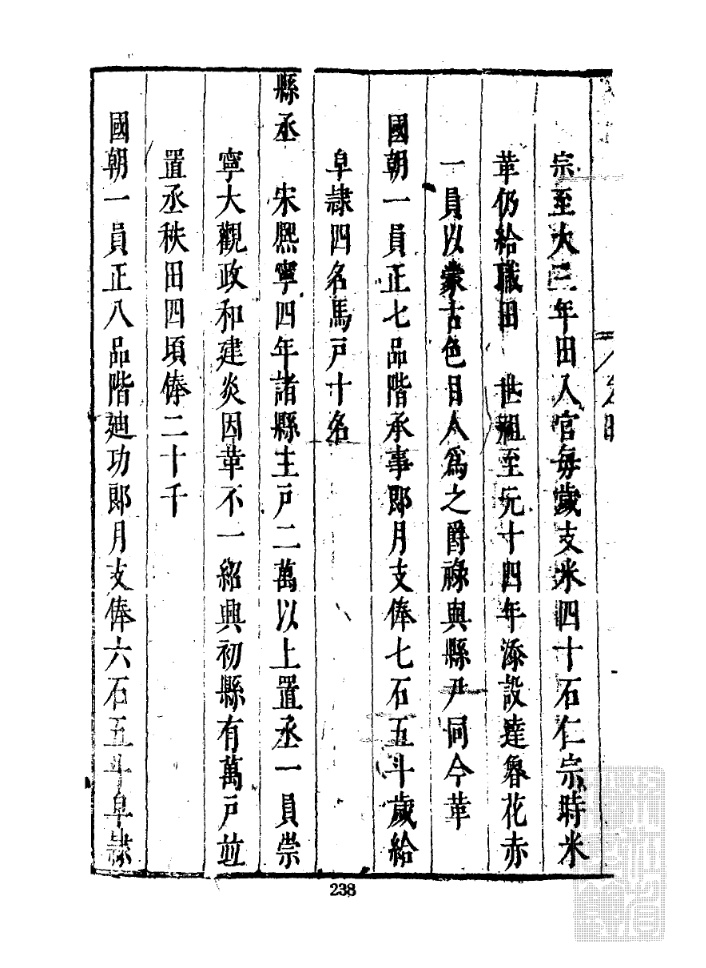 宗至大三年田入官每歲支米四十石仁宗時米
革仍給職田 世祖至元十四年添設達魯花赤
一員以蒙古色目人為之爵祿與縣尹同今革
國朝一員正七品階承事郎月支俸七石五斗歲給
皁隷四名馬戸十名
縣丞 宋熈寧四年諸縣主戸二萬以上置丞一員崇
寧大觀政和建炎因革不一紹興初縣有萬戸並
置丞秩田四頃俸二十千
國朝一員正八品階廸功郎月支俸六石五斗皁隷
238